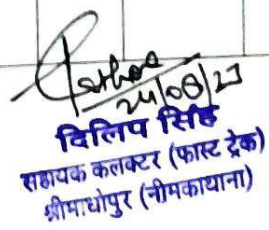 24/08/23
दिलिप सिंह
सहायक कलक्टर (फास्ट ट्रेक)
श्रीमाधोपुर (नीमकाथाना)